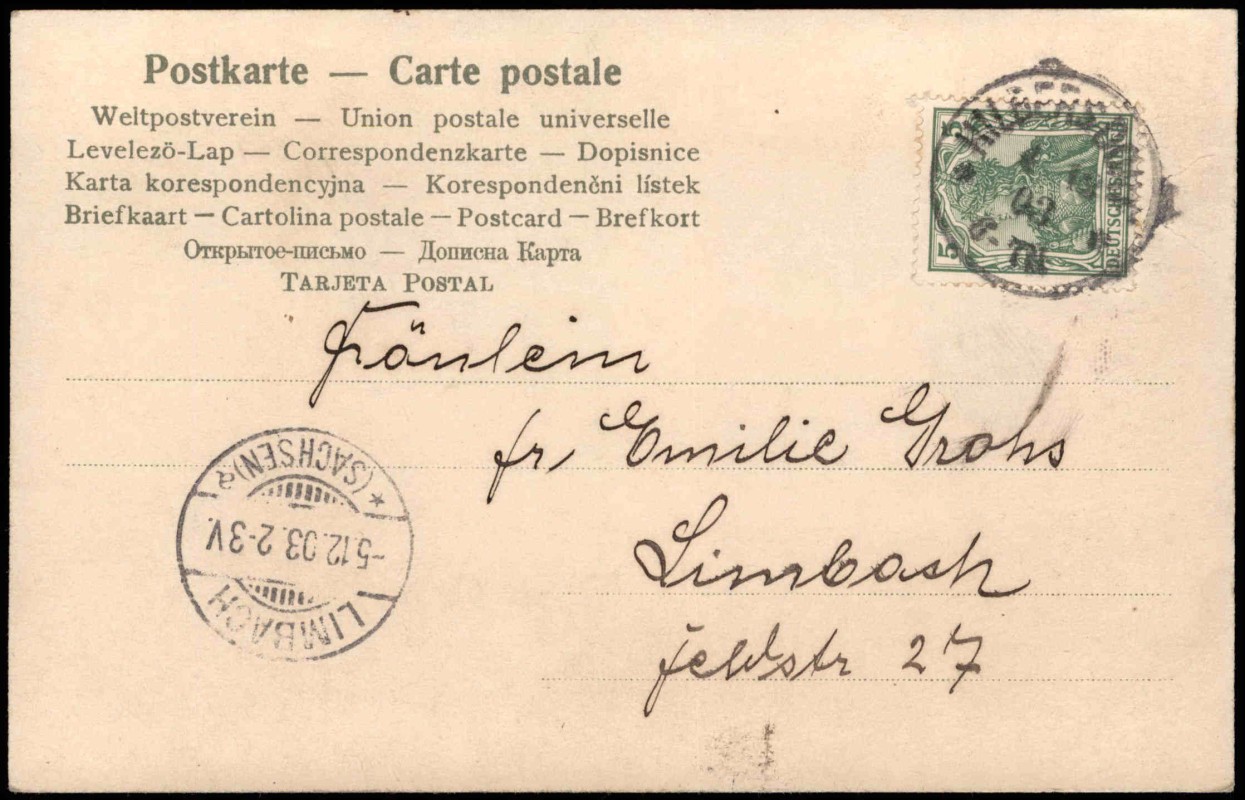 Postkarte — Carte postale
Weltpostverein — Union postale universelle
Levelezö-Lap — Correspondenzkarte — Dopisnice
Karta korespondencyjna — Korespondenčni lístek
Briefkaart — Cartolina postale — Postcard — Brefkort
Открытое-письмо — Дописна Карта
TARJETA POSTAL
5 5
DEUTSCHES REICH
03
6- 7N
Fräulein
fr, Emilie Grohs
Limbach
Feldstr 27
LIMBACH
-5.12.03. 2-3V.
* (SACHSEN) a